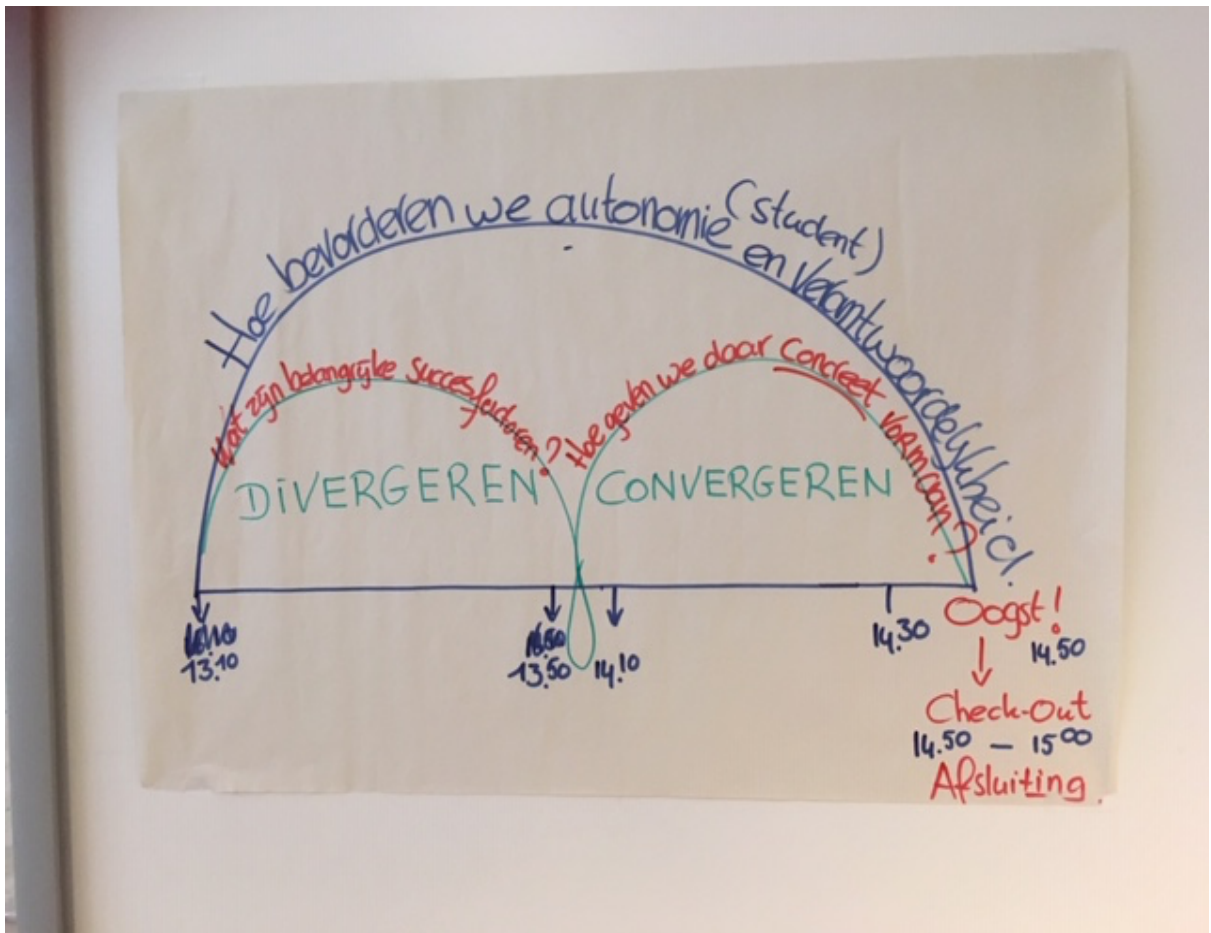 Hoe bevorderen we autonomie (student) en verantwoordelijkheid.
Wat zijn belangrijke succesfactoren?
Hoe geven we daar concreet vorm aan?
DIVERGEREN
CONVERGEREN
13.10
13.50
14.10
14.30
Oogst!
14.50
Check-Out
14.50 – 1500
Afsluiting.